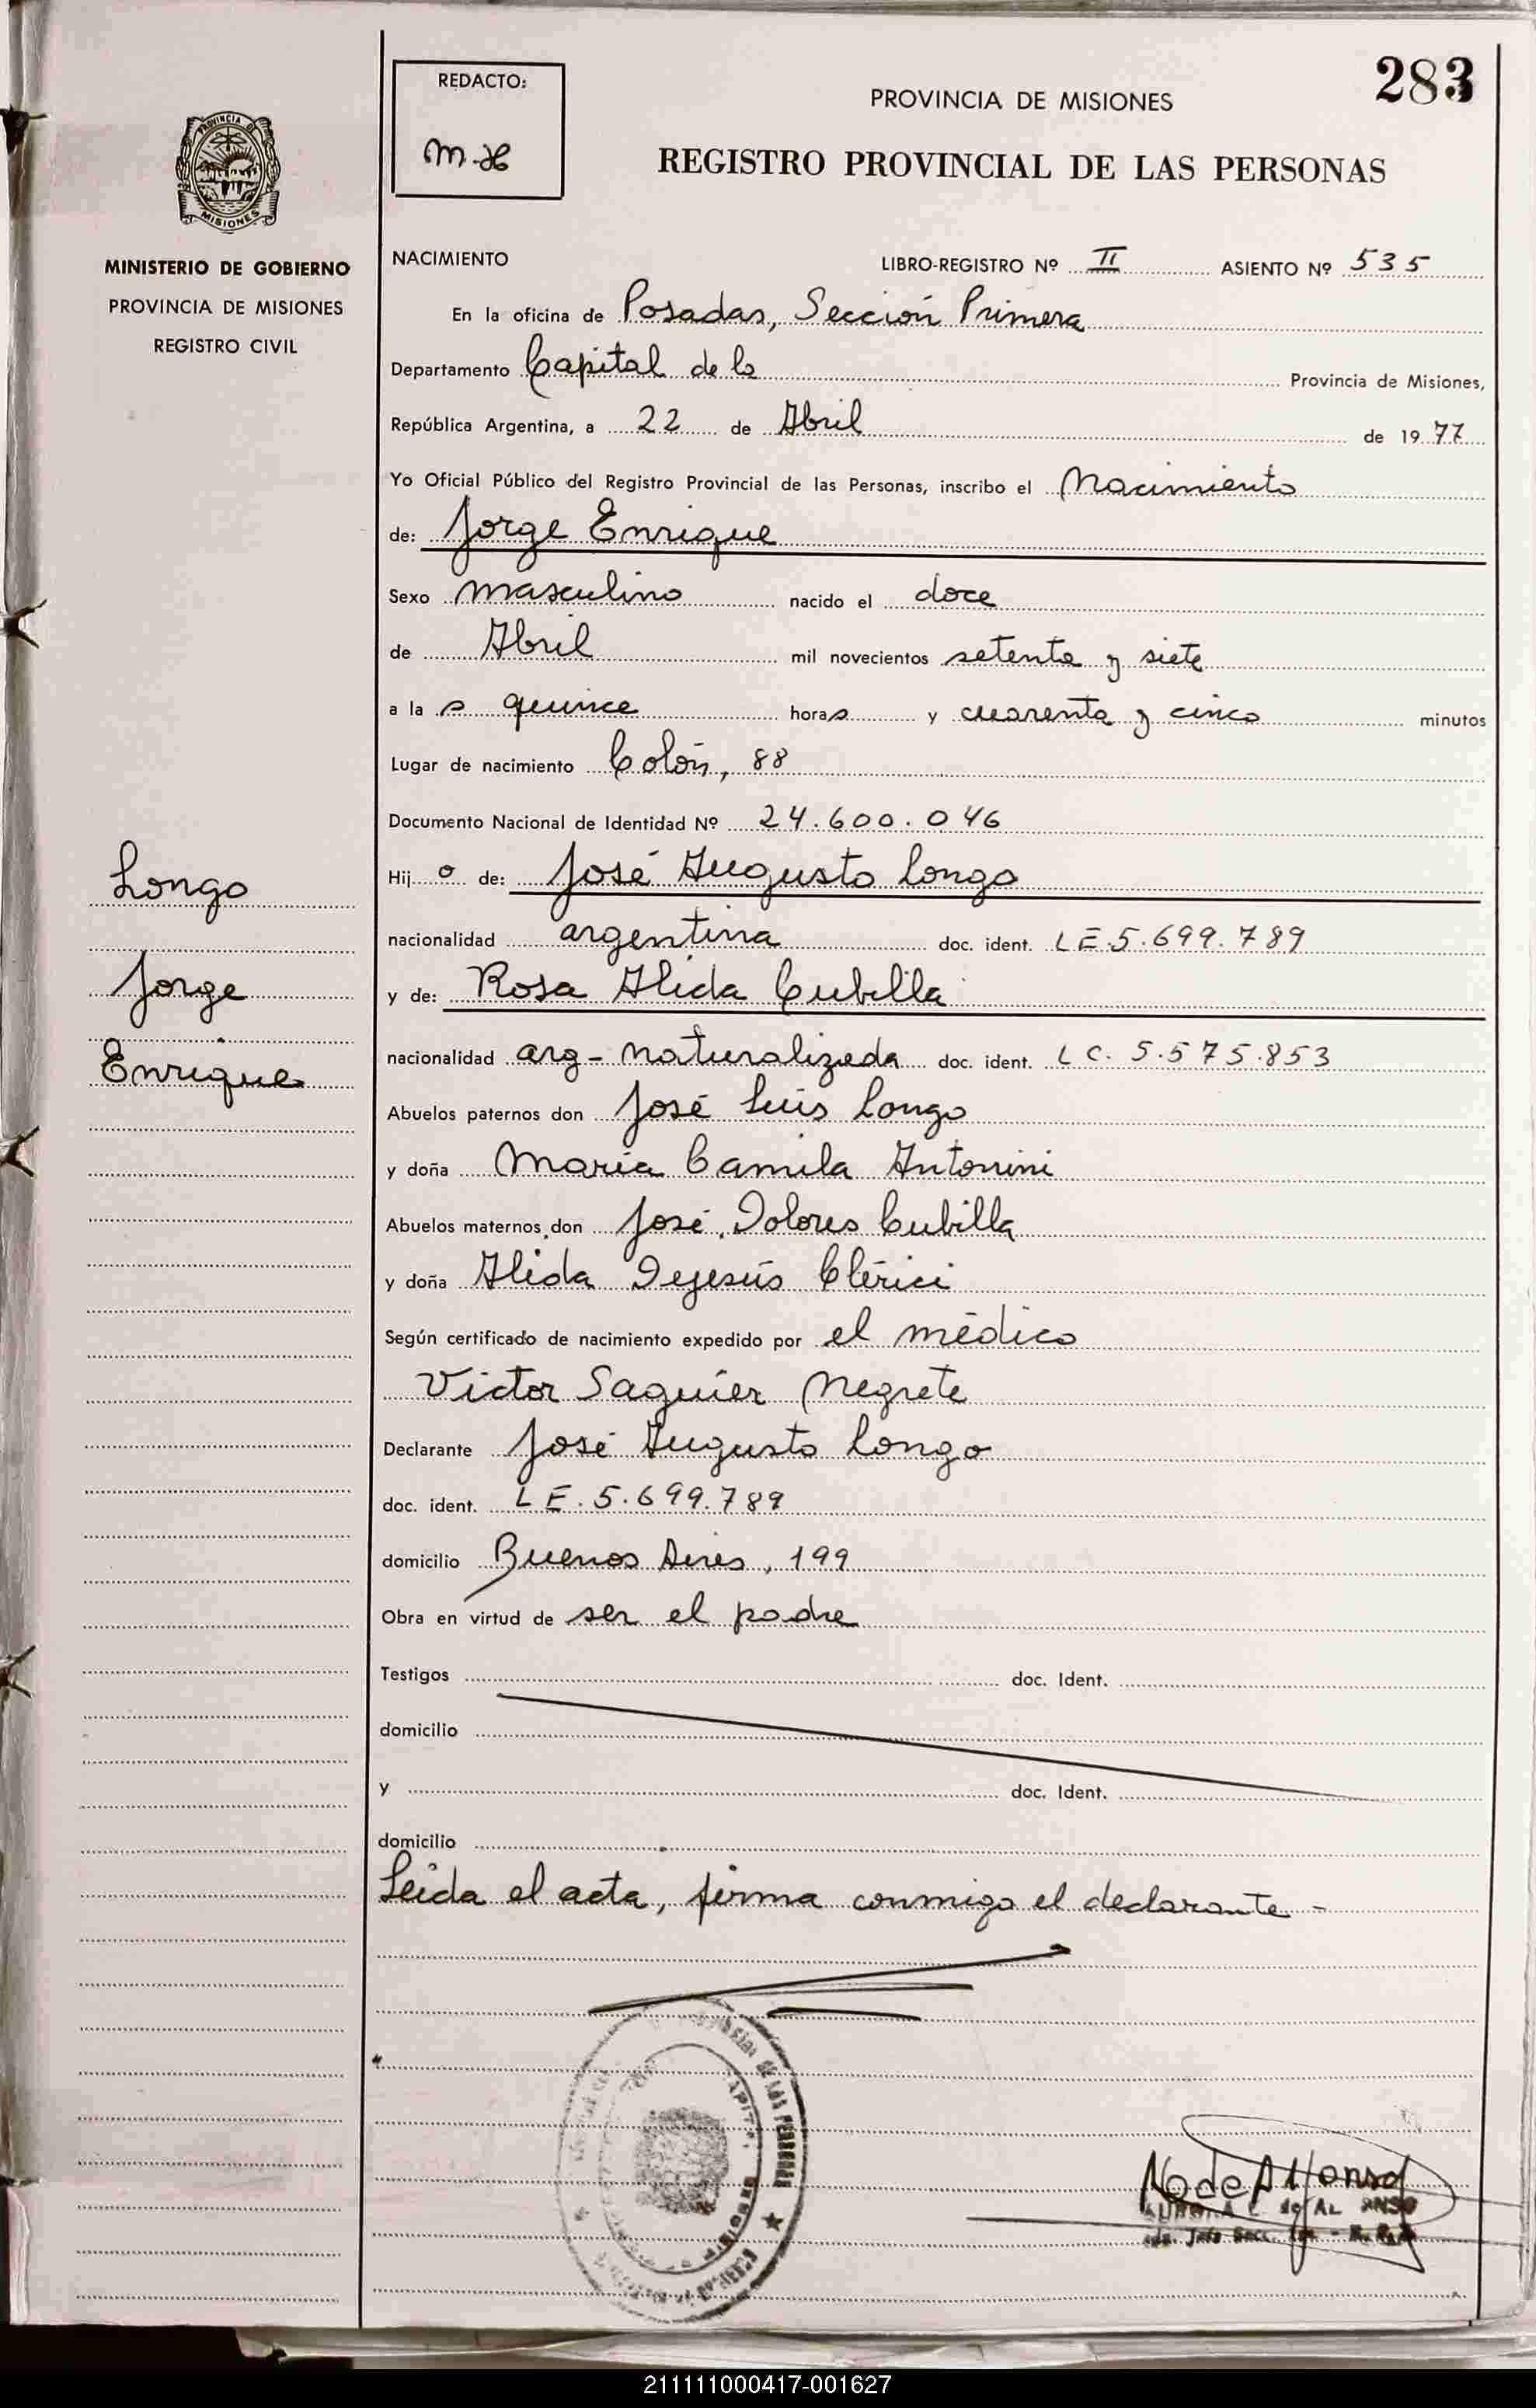 283
REDACTO:
PROVINCIA DE MISIONES
REGISTRO PROVINCIAL DE LAS PERSONAS
PROVINCIA DE
MISIONES
MINISTERIO DE GOBIERNO
PROVINCIA DE MISIONES
REGISTRO CIVIL
NACIMIENTO LIBRO-REGISTRO Nº II ASIENTO Nº 535
En la oficina de Posadas, Sección Primera
Departamento Capital de la Provincia de Misiones,
República Argentina, a 22 de Abril de 1977
Yo Oficial Público del Registro Provincial de las Personas, inscribo el Nacimiento
de: Jorge Enrique
Sexo masculino nacido el doce
de Abril mil novecientos setenta y siete
a la s quince horas y cuarenta y cinco minutos
Lugar de nacimiento Colón, 88
Documento Nacional de Identidad Nº 24.600.046
Hij o de: José Augusto Longo
nacionalidad argentina doc. ident. LE.5.699.789
y de: Rosa Alida Cubilla
nacionalidad arg- naturalizada doc. ident. LC. 5.575.853
Abuelos paternos don José Luis Longo
y doña María Camila Antonini
Abuelos maternos don José Dolores Cubilla
y doña Alida Dejesús Clérici
Según certificado de nacimiento expedido por el médico
Victor Saguier Negrete
Declarante José Augusto Longo
doc. ident. LE.5.699.789
domicilio Buenos Aires, 199
Obra en virtud de ser el padre
Testigos doc. Ident.
domicilio
y doc. Ident.
domicilio
Leida el acta, firma conmigo el declarante -
Longo
Jorge
Enrique
DE LAS PERSONAS
211111000417-001627